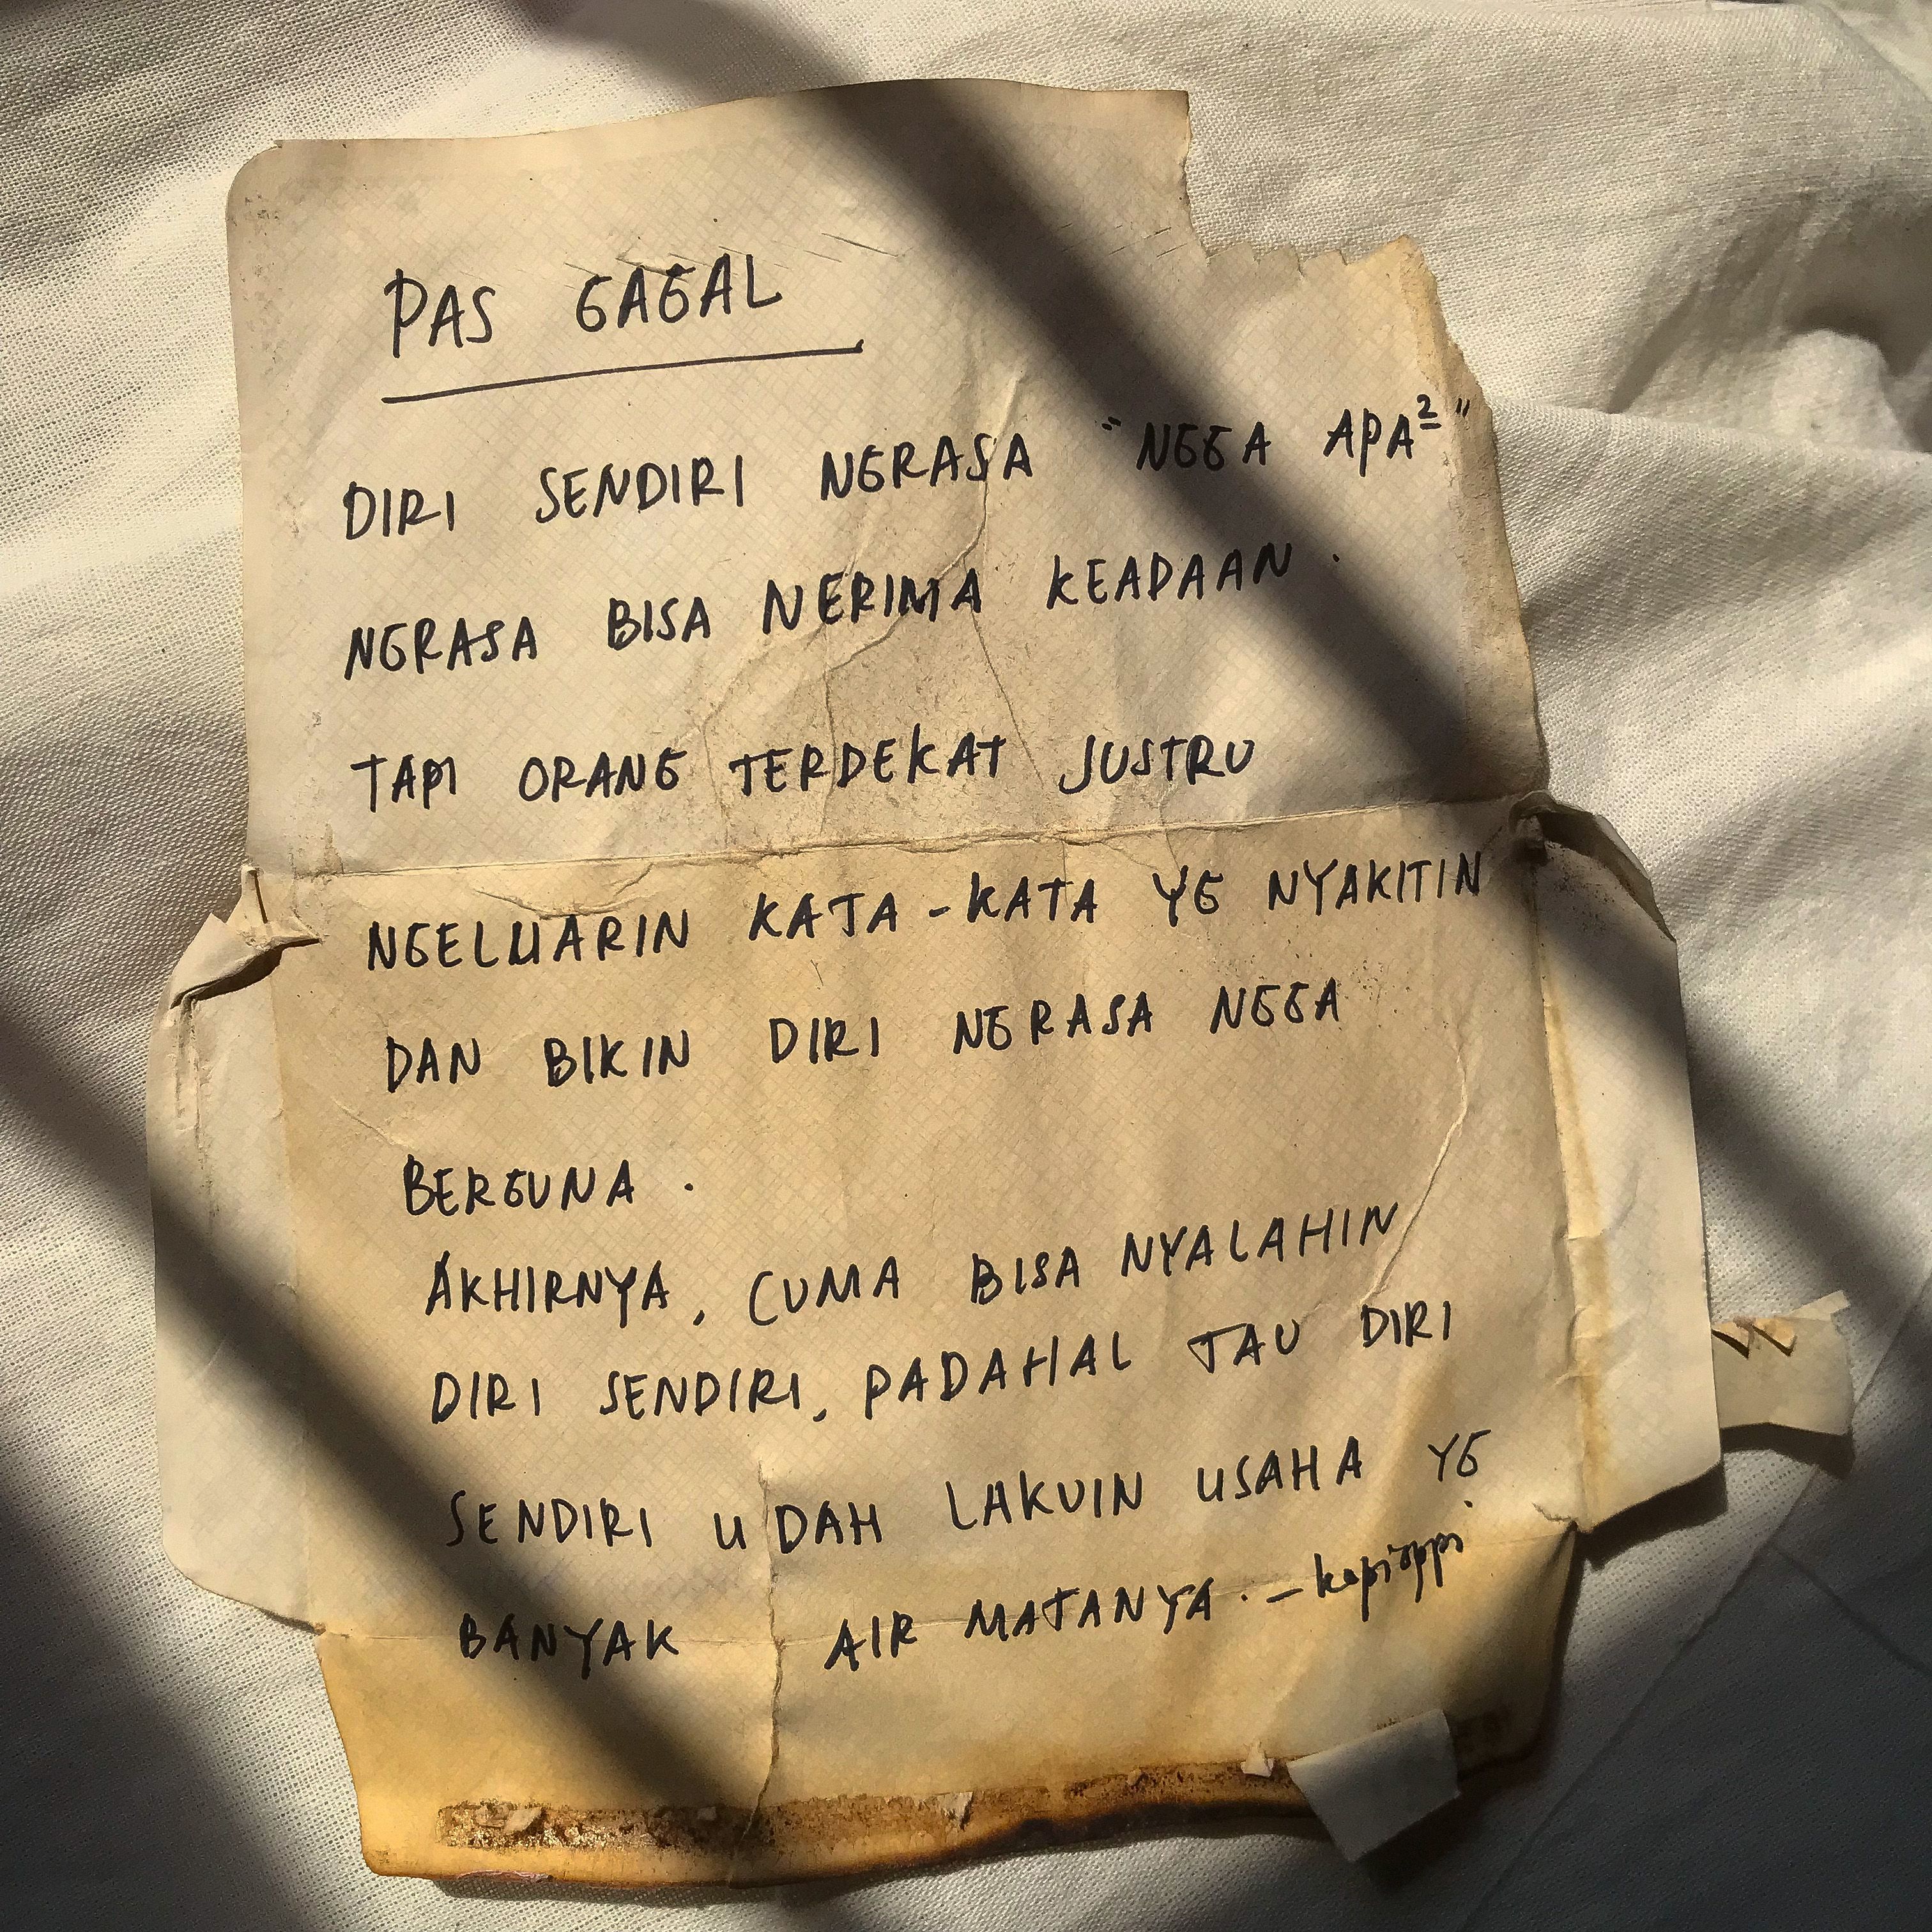 PAS GAGAL
DIRI SENDIRI NGRASA "NGGA APA²"
NGRASA BISA NERIMA KEADAAN.
TAPI ORANG TERDEKAT JUSTRU
NGELUARIN KATA-KATA YG NYAKITIN
DAN BIKIN DIRI NGRASA NGGA
BERGUNA.
AKHIRNYA, CUMA BISA NYALAHIN
DIRI SENDIRI, PADAHAL TAU DIRI
SENDIRI UDAH LAKUIN USAHA YG
BANYAK AIR MATANYA. -